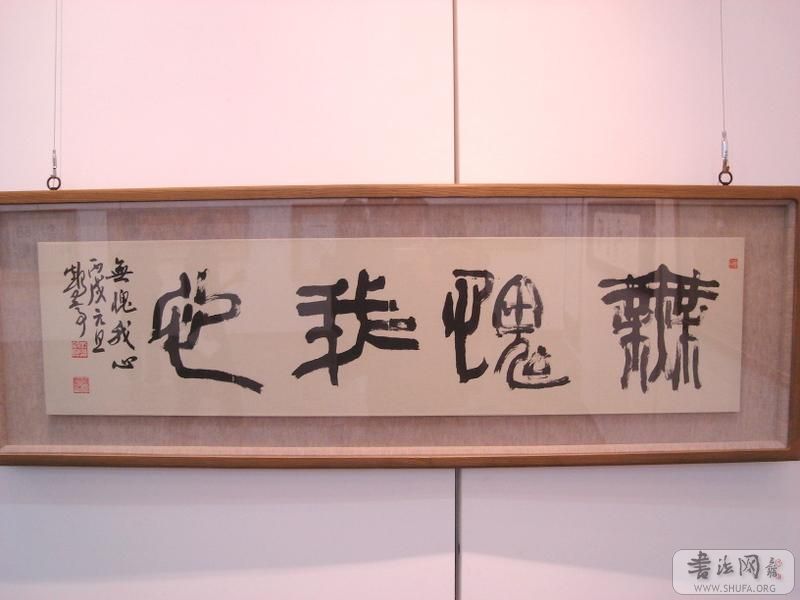 無愧我心
無愧我心
丙戌元旦
書法网
WWW.SHUFA.ORG